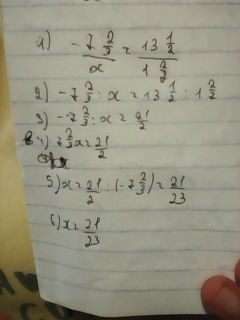 1) -7 2/3 / x = 13 1/2 / 1 2/7
2) -7 2/3 : x = 13 1/2 : 1 2/7
3) -7 2/3 : x = 21/2
4) 7 2/3 x = 21/2
5) x = 21/2 : (-7 2/3) = 21/23
6) x = 21/23